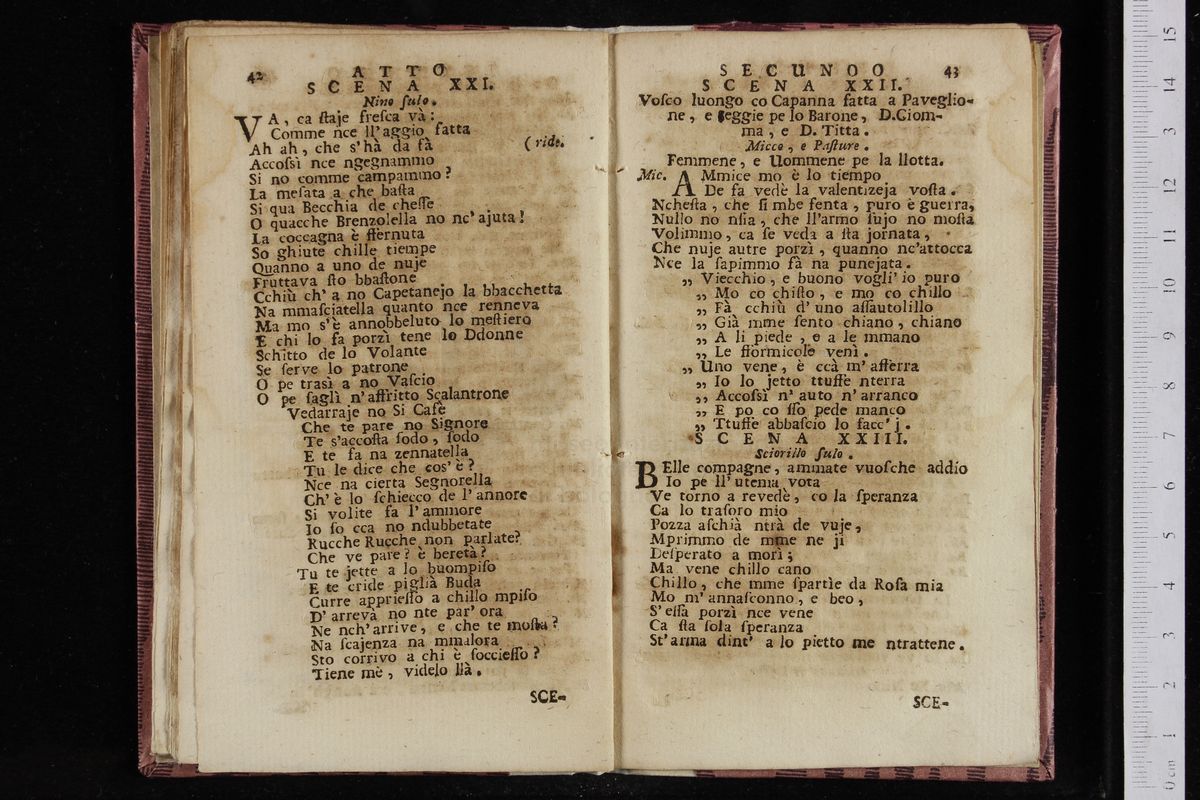 42 ATTO
SCENA XXI.
Nino ſulo.
VA, ca ſtaje freſca và:
Comme nce ll'aggio fatta
Ah ah, che s'hà da fà (ride.
Accoſsì nce ngegnammo
Si no comme campammo?
La meſata a che baſta
Si qua Becchia de cheſſe
O quacche Brenzolella no nc'ajuta!
La coccagna è ffernuta
So ghiute chille tiempe
Quanno a uno de nuje
Fruttava ſto bbaſtone
Cchiù ch'a no Capetanejo la bbacchetta
Na mmaſciatella quanto nce renneva
Ma mo s'è annobbeluto lo meſtiero
E chi lo fa porzì tene lo Ddonne
Schitto de lo Volante
Se ſerve lo patrone
O pe traſì a no Vaſcio
O pe ſaglì n'affritto Scalantrone
Vedarraje no Si Caſè
Che te pare no Signore
Te s'accoſta ſodo, ſodo
E te fa na zennatella
Tu le dice che cos'è?
Nce na cierta Segnorella
Ch'è lo ſchiecco de l'annore
Si volite fa l'ammore
Io ſo cca no ndubbetate
Rucche Rucche non parlate?
Che ve pare? è beretà?
Tu te jette a lo buompiſo
E te cride piglià Buda
Curre apprieſſo a chillo mpiſo
D'arrevà no nte par'ora
Ne nch'arrive, e che te moſta?
Na ſcajenza na mmalora
Sto corrivo a chi è ſoccieſſo?
Tiene mè, videlo llà.
SCE-
SECUNOO 43
SCENA XXII.
Voſco luongo co Capanna fatta a Paveglio-
ne, e ſeggie pe lo Barone, D.Ciom-
ma, e D. Titta.
Micco, e Paſture.
Femmene, e Uommene pe la llotta.
Mic. AMmice mo è lo tiempo
De fa vedè la valentizeja voſta.
Ncheſta, che ſi mbe fenta, puro è guerra,
Nullo no nſia, che ll'armo ſujo no moſta
Volimmo, ca ſe veda a ſta jornata,
Che nuje autre porzì, quanno nc'attocca
Nce la ſapimmo fà na punejata.
„ Viecchio, e buono vogli'io puro
„ Mo co chiſto, e mo co chillo
„ Fà cchiù d'uno aſſautolillo
„ Già mme ſento chiano, chiano
„ A li piede, e a le mmano
„ Le fformicole venì.
„ Uno vene, è ccà m'afferra
„ Io lo jetto ttuffè nterra
„ Accoſsì n'auto n'arranco
„ E po co ſſo pede manco
„ Ttuffè abbaſcio lo facc'j.
SCENA XXIII.
Sciorillo ſulo.
BElle compagne, ammate vuoſche addio
Io pe ll'utema vota
Ve torno a revedè, co la ſperanza
Ca lo traſoro mio
Pozza aſchià ntrà de vuje,
Mprimmo de mme ne jì
Deſperato a morì;
Ma vene chillo cano
Chillo, che mme ſpartìe da Roſa mia
Mo m'annaſconno, e beo,
S'eſſa porzì nce vene
Ca ſta ſola ſperanza
St'arma dint' a lo pietto me ntrattene.
SCE-